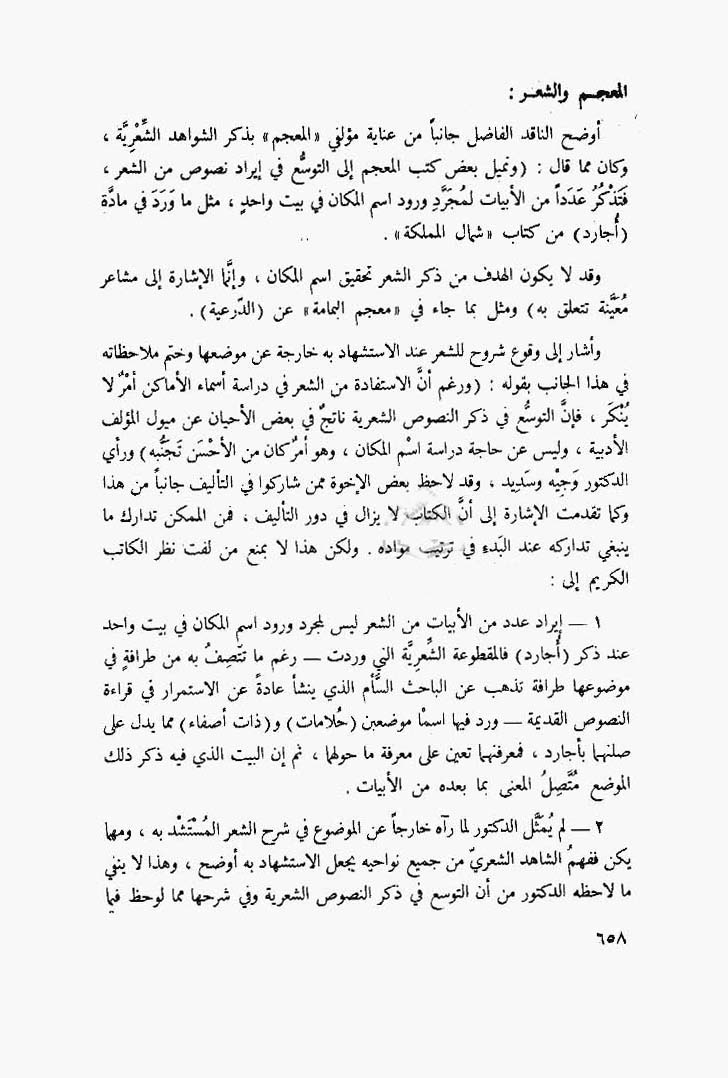 المعجـم والشعـر :
أوضح الناقد الفاضل جانباً من عناية مؤلفي «المعجم» بذكر الشواهد الشِّعْرِيَّة ،
وكان مما قال : (وتميل بعض كتب المعجم إلى التوسُّع في إيراد نصوص من الشعر ،
فَتَذْكُرُ عَدَداً من الأبيات لمُجَرَّدِ ورود اسم المكان في بيت واحدٍ ، مثل ما وَرَدَ في مادَّة
(أُجارد) من كتاب «شمال المملكة» .
وقد لا يكون الهدف من ذكر الشعر تحقيق اسم المكان ، وإنَّما الإشارة إلى مشاعر
مُعَيَّنة تتعلق به) ومثل بما جاء في «معجم اليمامة» عن (الدّرعية) .
وأشار إلى وقوع شروح للشعر عند الاستشهاد به خارجة عن موضعها وختم ملاحظاته
في هذا الجانب بقوله : (ورغم أنَّ الاستفادة من الشعر في دراسة أسماء الأماكن أمْرٌ لا
يُنْكَر ، فإنَّ التوسُّع في ذكر النصوص الشعرية ناتجٌ في بعض الأحيان عن ميول المؤلف
الأدبية ، وليس عن حاجة دراسة اسْم المكان ، وهو أمرٌ كان من الأحْسَن تَجَنُّبه) ورأي
الدكتور وَجِيْه وسَدِيد ، وقد لاحظ بعض الإخوة ممن شاركوا في التأليف جانباً من هذا
وكما تقدمت الإشارة إلى أنَّ الكتاب لا يزال في دور التأليف ، فمن الممكن تدارك ما
ينبغي تداركه عند البَدءِ في ترتيب مواده . ولكن هذا لا يمنع من لفت نظر الكاتب
الكريم إلى :
١ — إيراد عدد من الأبيات من الشعر ليس لمجرد ورود اسم المكان في بيت واحد
عند ذكر (أُجارد) فالمقطوعة الشِّعرِيَّة التي وردت — رغم ما تتّصِفُ به من طرافةٍ في
موضوعها طرافة تذهب عن الباحث السَّأم الذي ينشأ عادةً عن الاستمرار في قراءة
النصوص القديمة — ورد فيها اسمْا موضعين (حُلامات) و(ذات أصفاء) مما يدل على
صلتهما بأجارد ، فمعرفتهما تعين على معرفة ما حولهما ، ثم إن البيت الذي فيه ذكر ذلك
الموضع مُتَّصِلُ المعنى بما بعده من الأبيات .
٢ — لم يُمَثِّل الدكتور لما رآه خارجاً عن الموضوع في شرح الشعر المُسْتَشْهد به ، ومهما
يكن ففهمُ الشاهد الشعريّ من جميع نواحيه يجعل الاستشهاد به أوضح ، وهذا لا ينفي
ما لاحظه الدكتور من أن التوسع في ذكر النصوص الشعرية وفي شرحها مما لوحظ فيما
٦٥٨